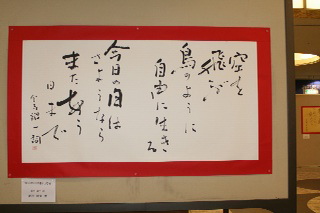 空を
飛ぶ
鳥のように
自由に生きる
今日の日は
さようなら
またあう
日まで